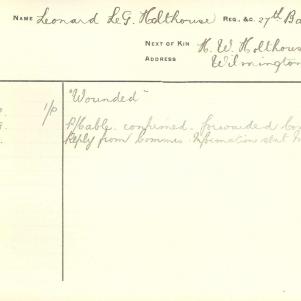 NAME Leonard LeG. Holthouse REG. &C. 27th Ba
NEXT OF KIN H. W. Holthous
ADDRESS Wilmington
1/P "Wounded"
P/Cable confirmed. forwarded
Reply from Commes. Information sent